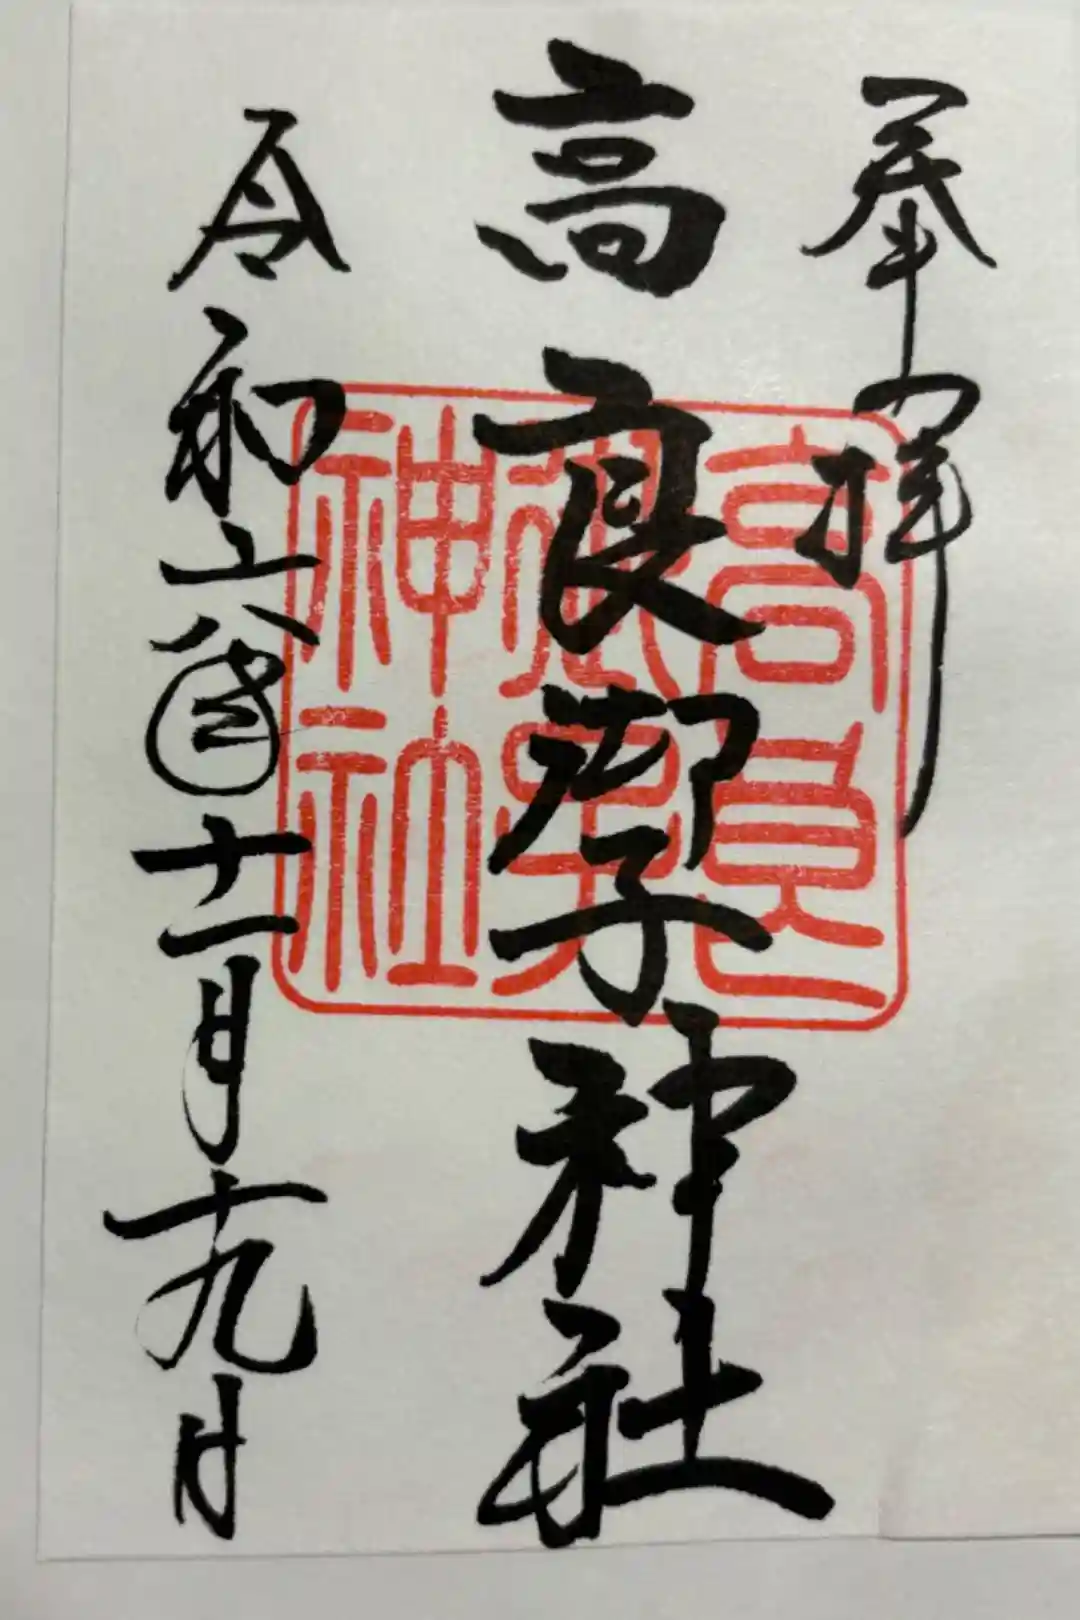 奉拝
高良御子神社
令和六 十一月十九日
高良
神社